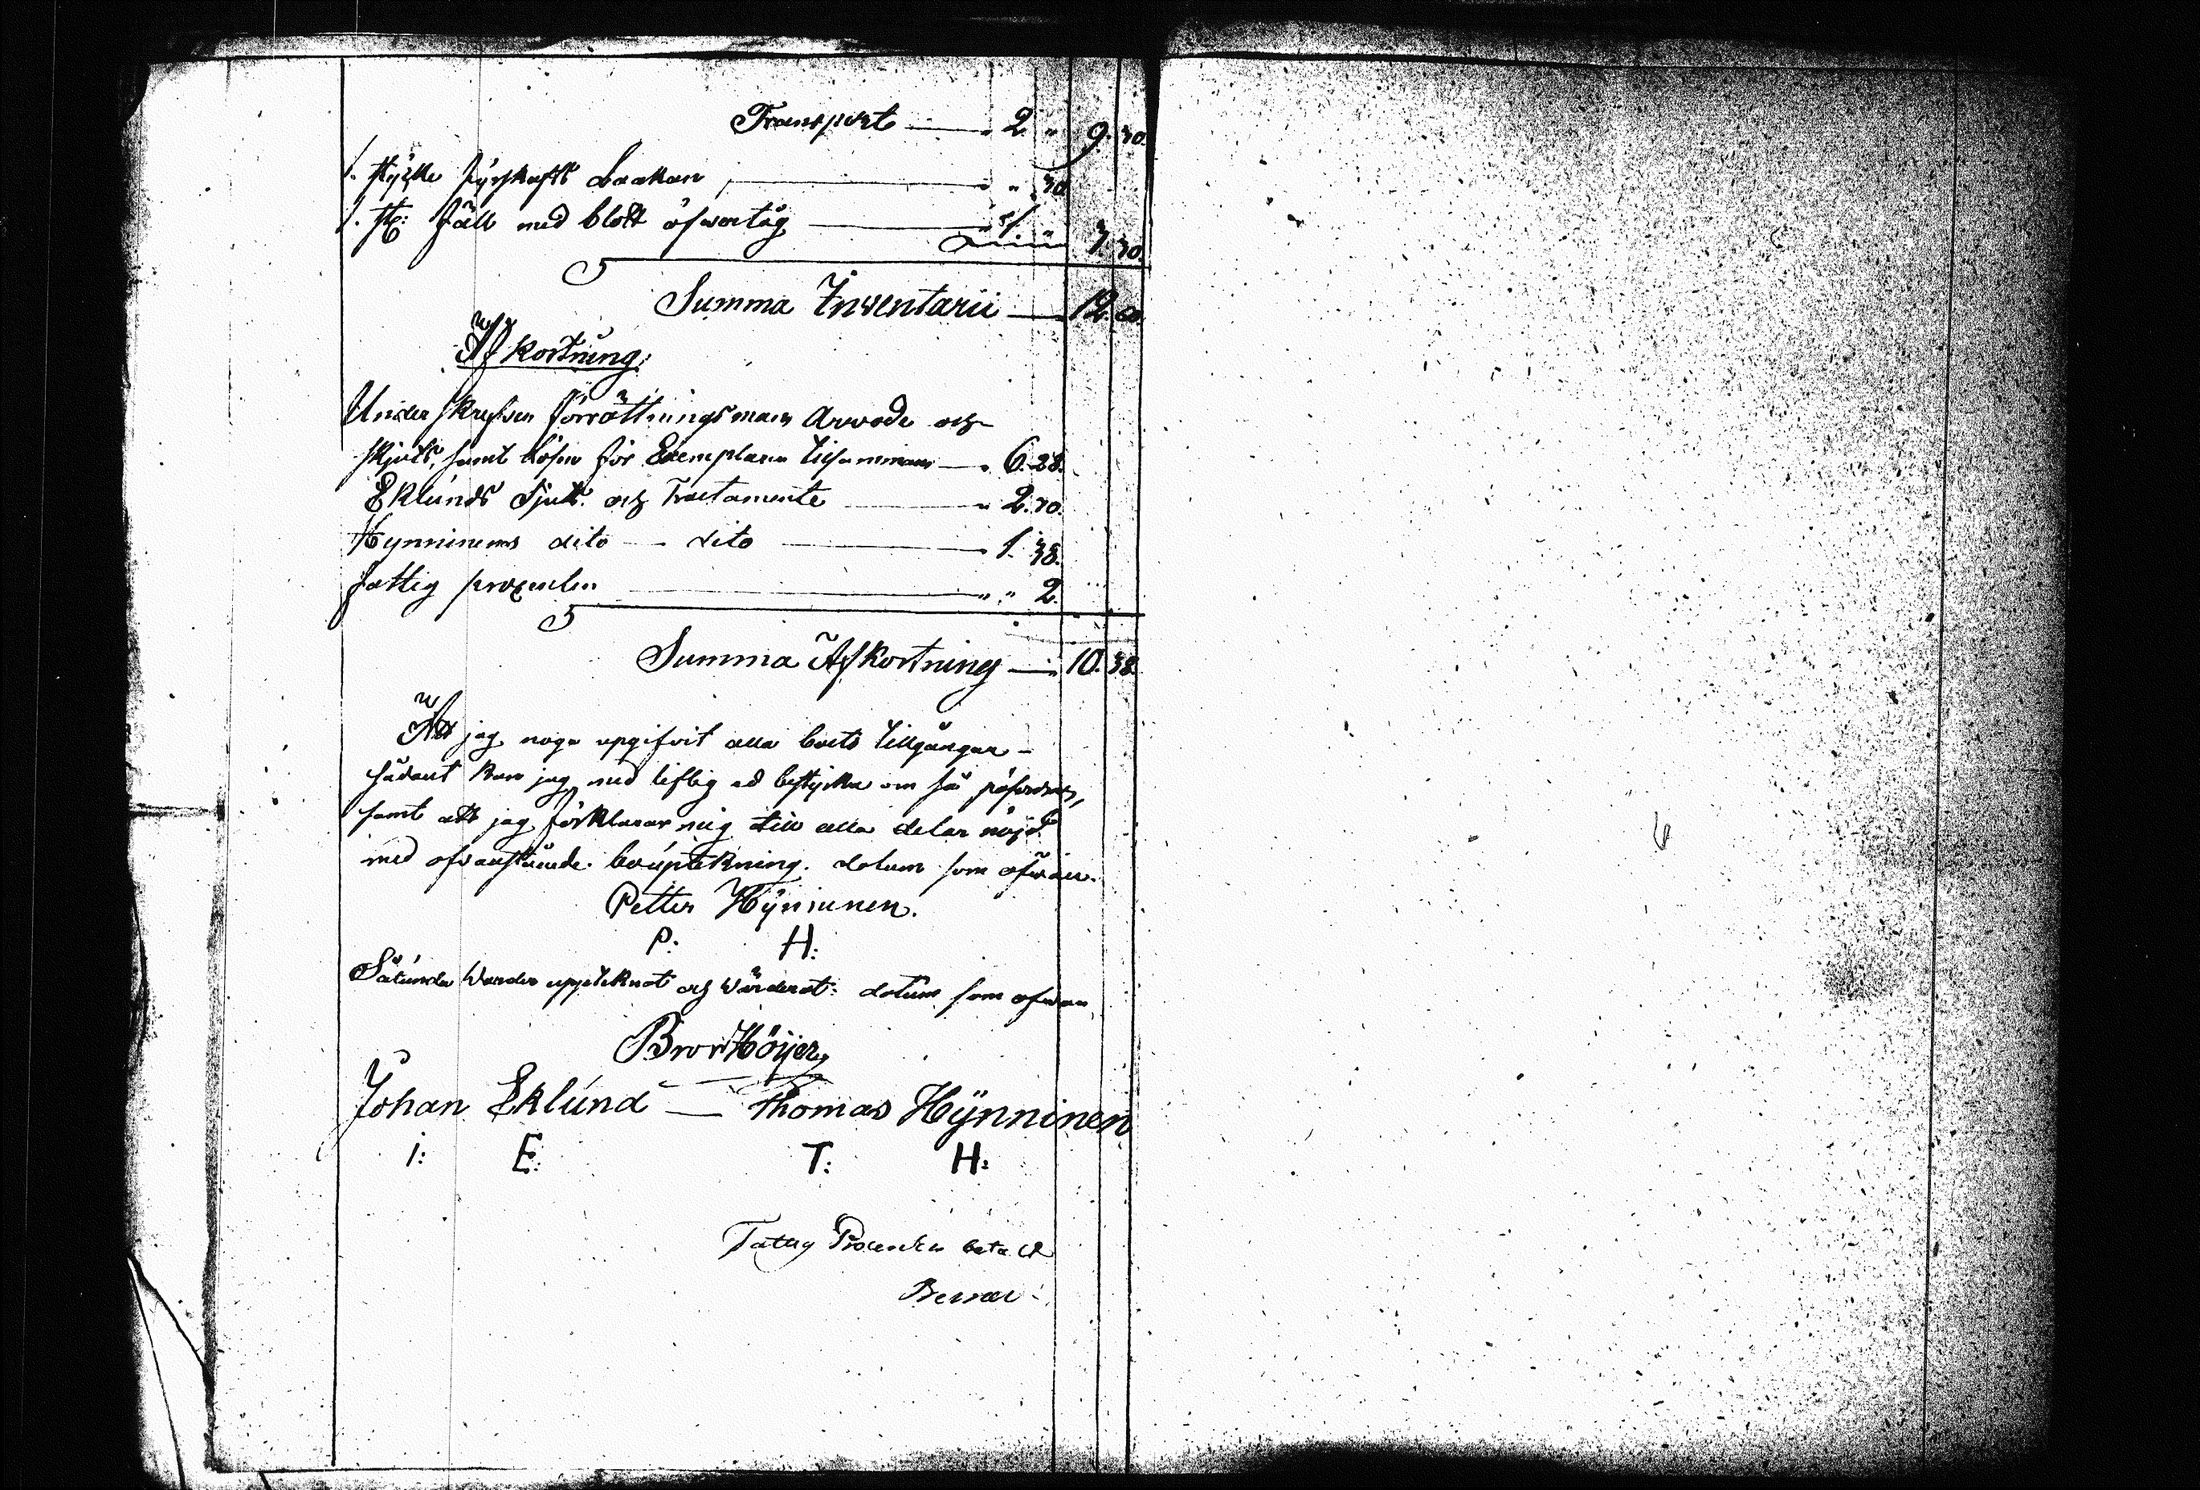 Transport — 2 " 9. 30.
1. stÿcke fÿrskafts Laakan — " " 30
1. st: fäll med blott öfvertåg — " 1. " 3. 30.
Summa Inventarii — 12. 60.
Afkortning:
Underskrefven förrättningsmans arvode och
skjuts, samt lösen för Exemplaren tillsammans — " 6. 28.
Eklunds skjuts och Tractamente — " 2. 70.
Hynninens dito — dito — " 1. 38.
fattig procenten — " " 2.
Summa Afkortning — 10. 38.
Att jag noga upgifvit alla boets tillgångar
sådant kan jag med liflig ed bestyrka om så påfordras,
samt att jag förklarar mig till alla delar nöjd
med ofvanstående bouptekning. datum som ofvan.
Petter Hÿninen.
P: H:
Sålunda vander upptecknat och värderat: datum som ofvan
Bror Höijer
Johan Eklund — Thomas Hÿnninen
I: E: T: H:
Fattig Procenten betalt